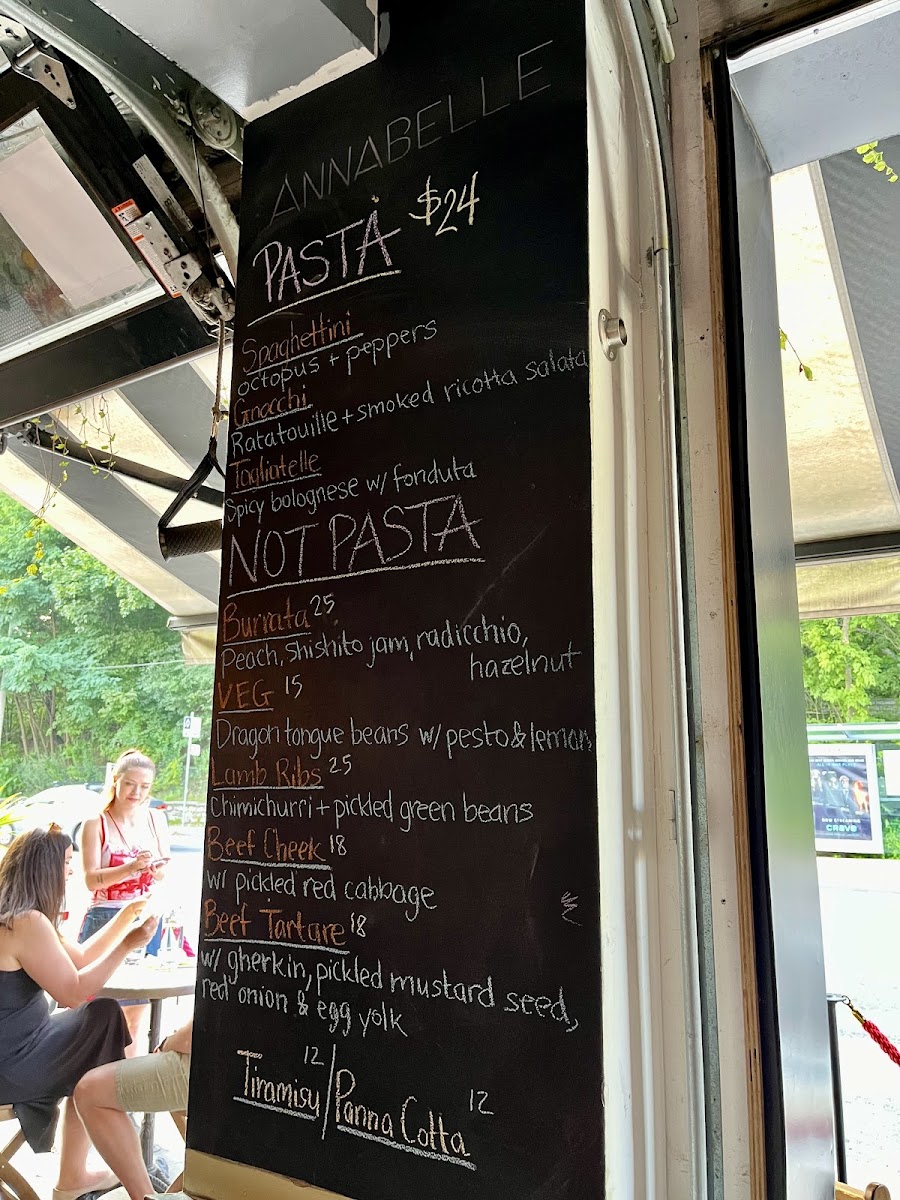 ANNABELLE
PASTA $24
Spaghettini
octopus + peppers
Gnocchi
Ratatouille + smoked ricotta salata
Tagliatelle
Spicy bolognese w/ fonduta
NOT PASTA
Burrata 25
Peach, shishito jam, radicchio,
hazelnut
VEG 15
Dragon tongue beans w/ pesto & lemon
Lamb Ribs 25
Chimichurri + pickled green beans
Beef Cheek 18
w/ pickled red cabbage
Beef Tartare 18
w/ gherkin, pickled mustard seed,
red onion & egg yolk
Tiramisu 12 / Panna Cotta 12
CRAVE